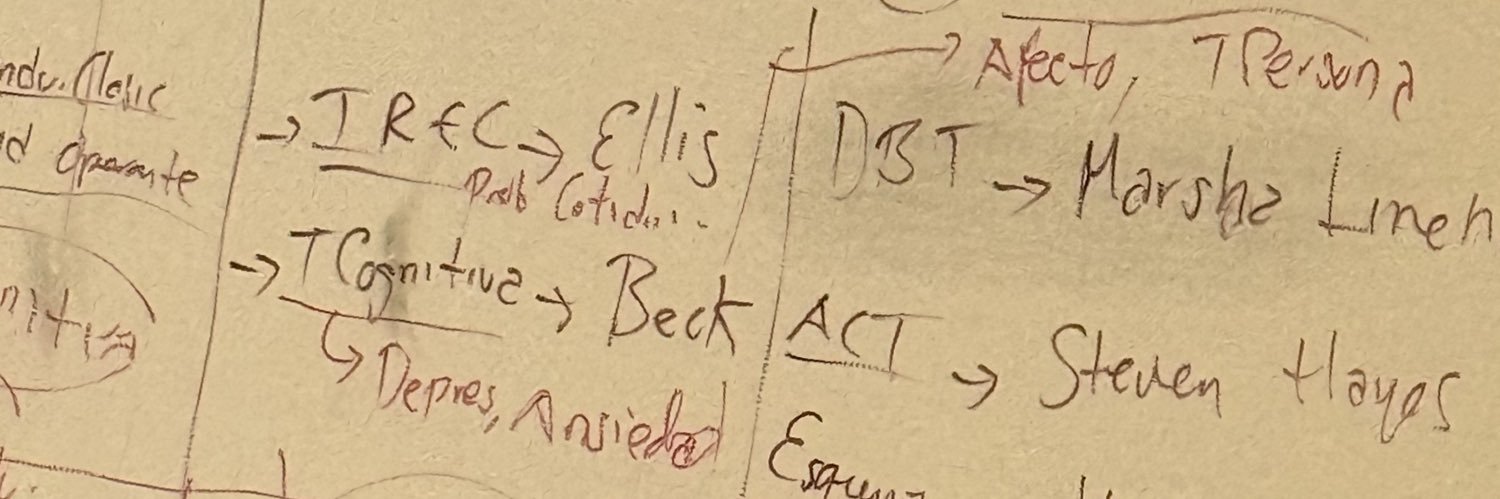 operante
→ TREC → Ellis
Prob Cotidi..
→ TCognitiva → Beck
↳ Depres, Ansiedad
→ Afecto, TPersona
DBT → Marsha Lineh
ACT → Steven Hayes
Esquema